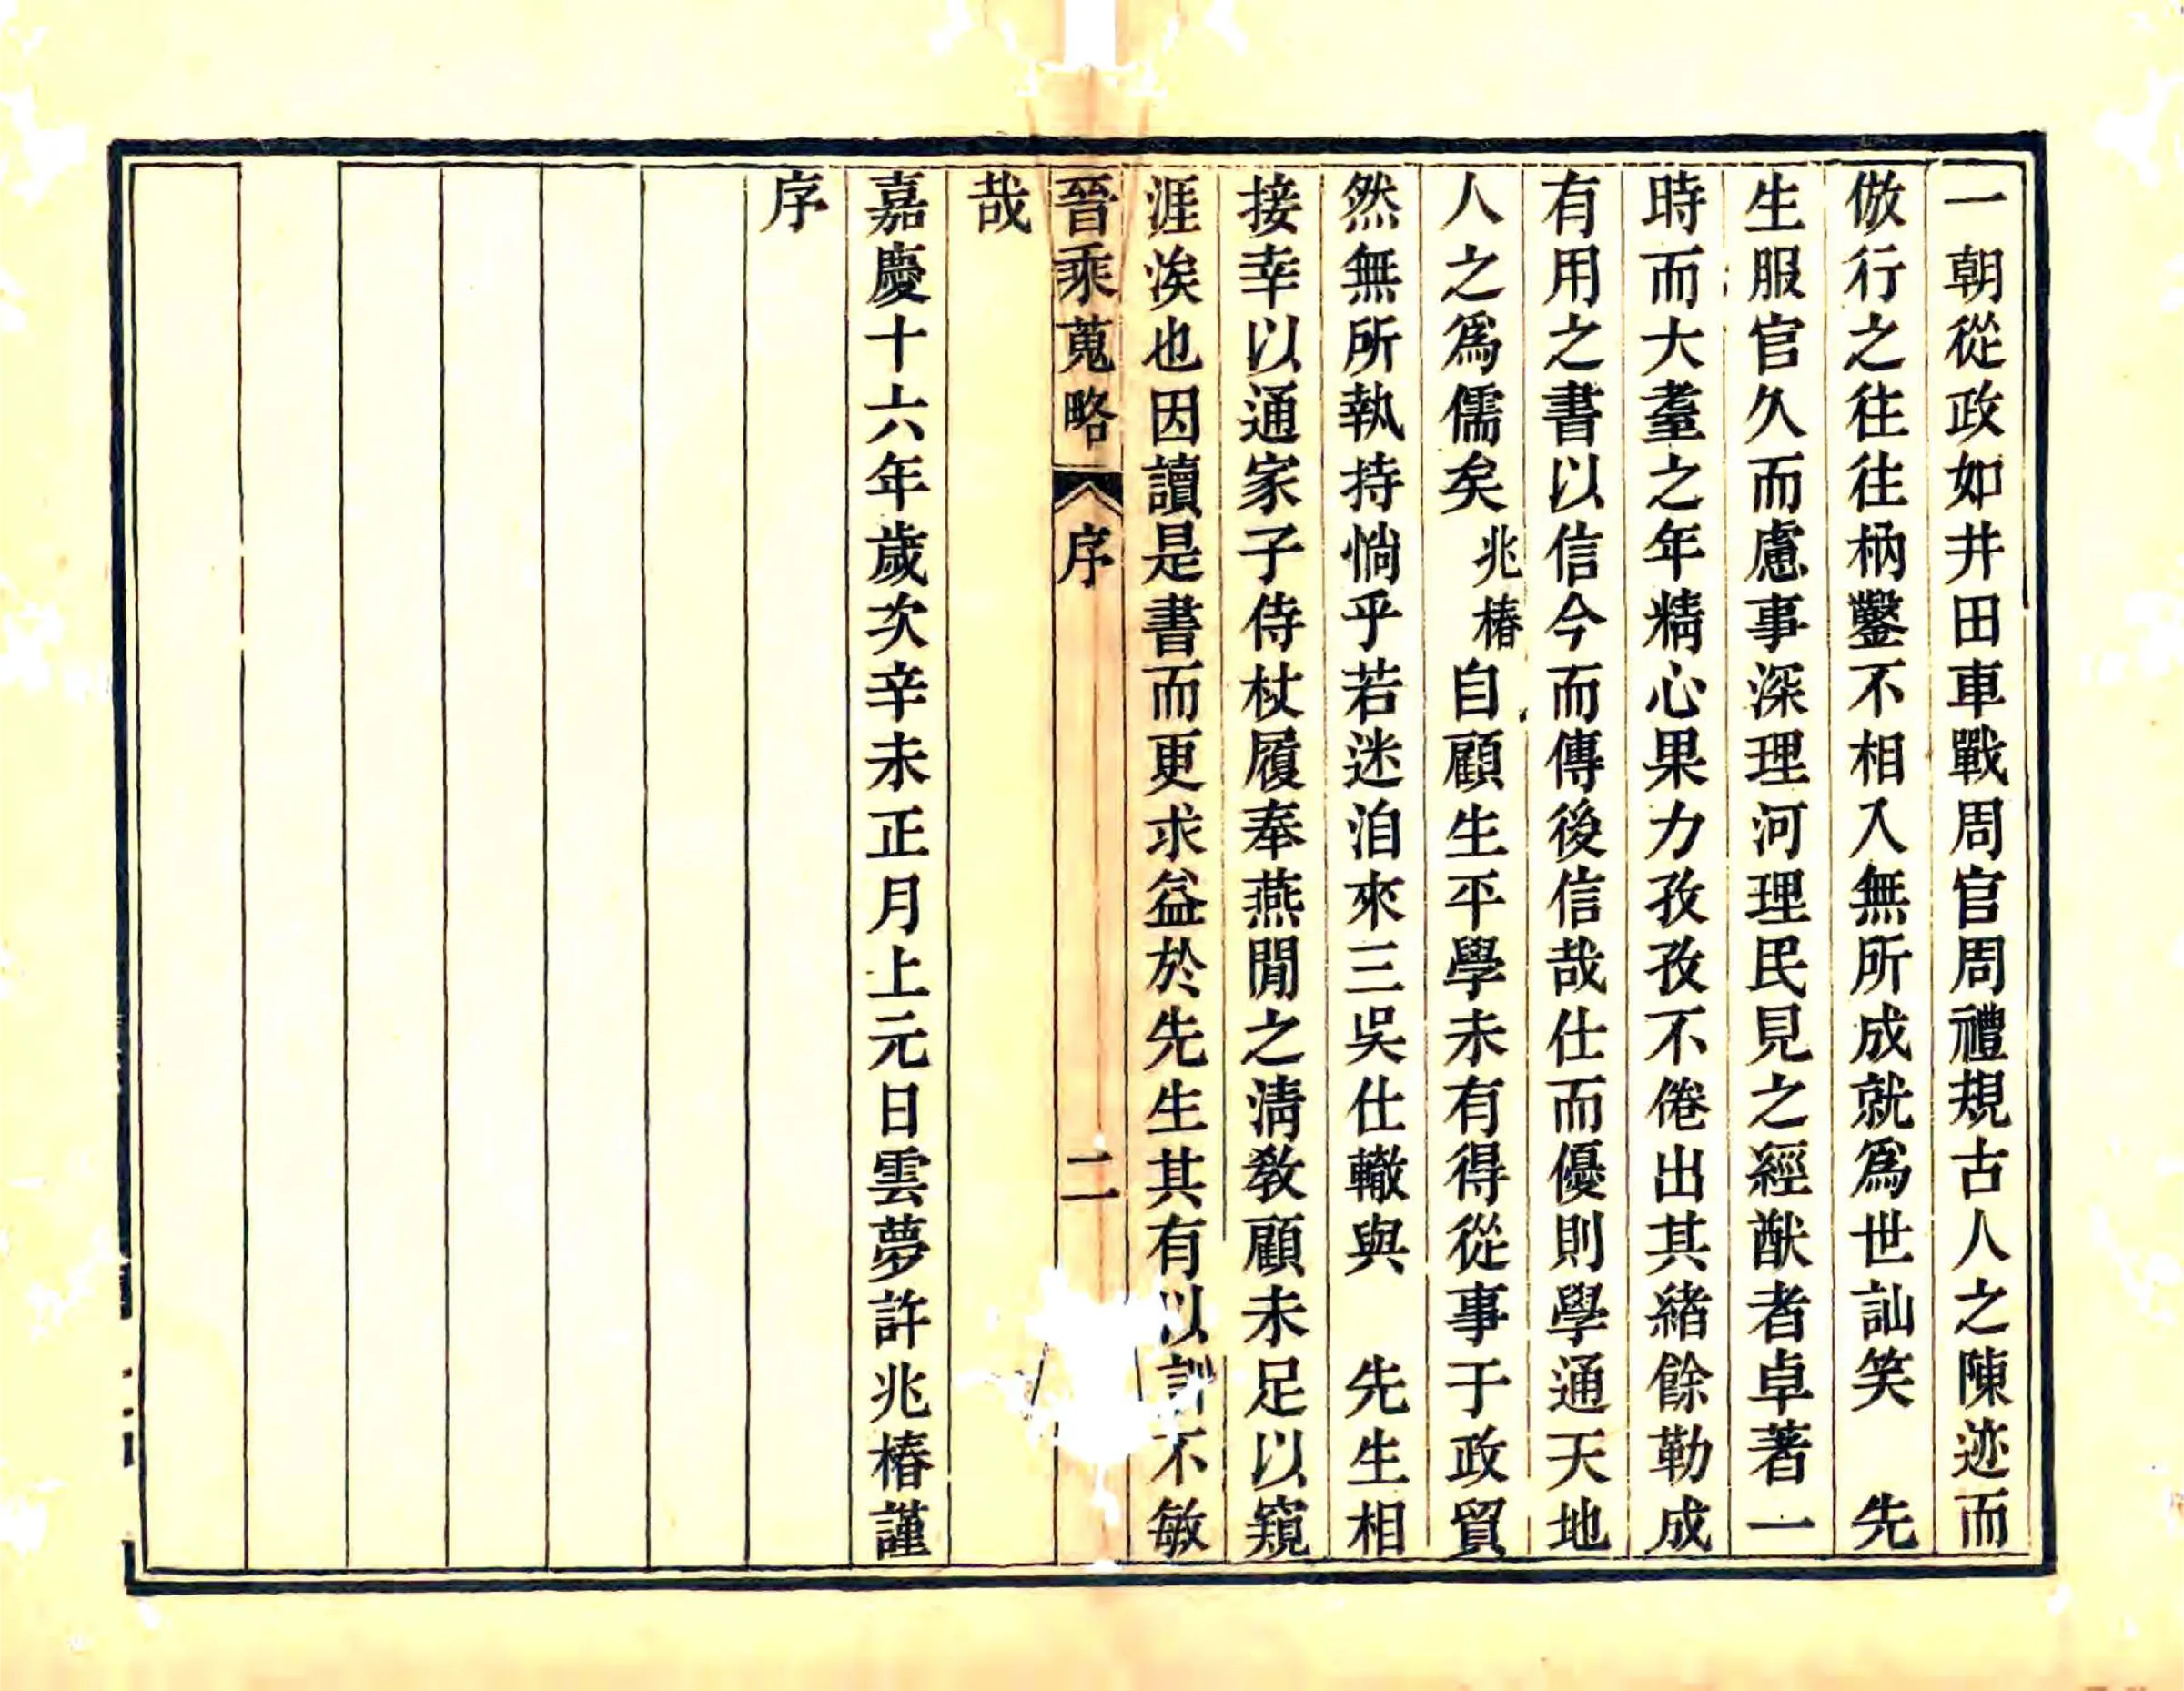 一朝從政如井田車戰周官周禮規古人之陳迹而
倣行之往往枘鑿不相入無所成就爲世訕笑　先
生服官久而慮事深理河理民見之經猷者卓著一
時而大耋之年精心果力孜孜不倦出其緒餘勒成
有用之書以信今而傳後信哉仕而優則學通天地
人之爲儒矣兆椿自顧生平學未有得從事于政貿
然無所執持惝乎若迷洎來三吳仕轍與　先生相
接幸以通家子侍杖履奉燕閒之淸教顧未足以窺
涯涘也因讀是書而更求益於先生其有以訓不敏
晉乘蒐略　序　二
哉
嘉慶十六年歲次辛未正月上元日雲夢許兆椿謹
序